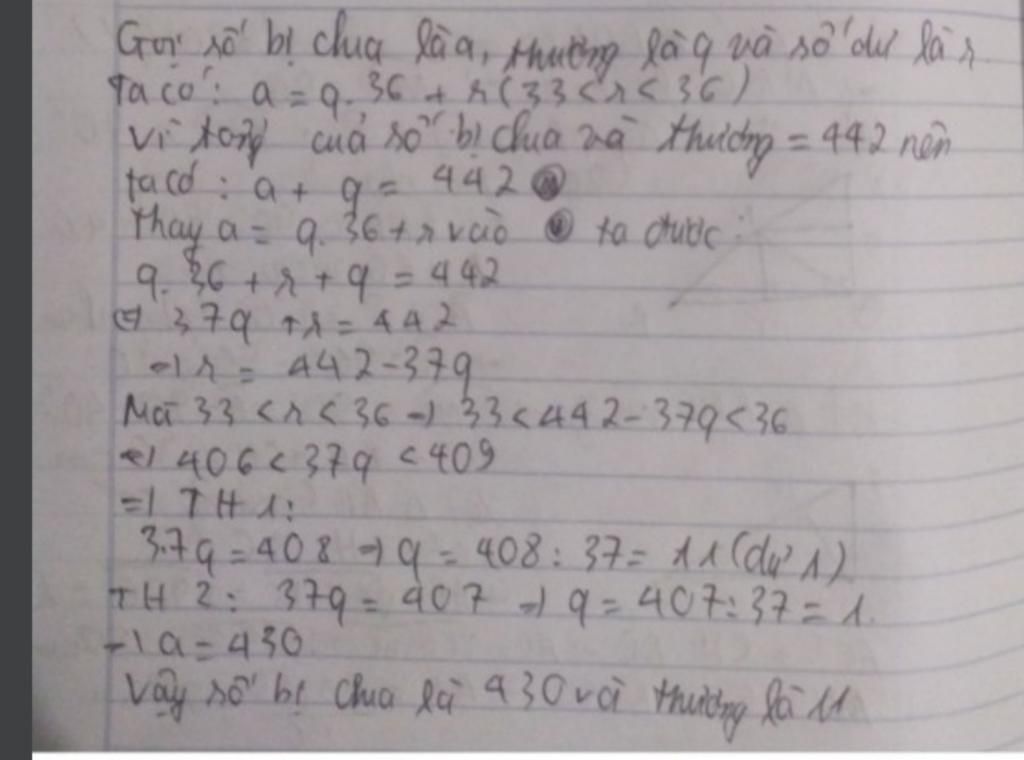 Gọi số bị chia là a, thương là q và số dư là r.
Ta có: a = q.36 + r (33 < r < 36)
Vì tổng của số bị chia và thương = 442 nên
ta có: a + q = 442
Thay a = q.36 + r vào ta được:
q.36 + r + q = 442
⇔ 37q + r = 442
⇒ r = 442 - 37q
Mà 33 < r < 36 ⇒ 33 < 442 - 37q < 36
⇔ 406 < 37q < 409
⇒ TH1:
37q = 408 ⇒ q = 408 : 37 = 11 (dư 1)
TH2: 37q = 407 ⇒ q = 407 : 37 = 1
⇒ a = 430
Vậy số bị chia là 430 và thương là 11